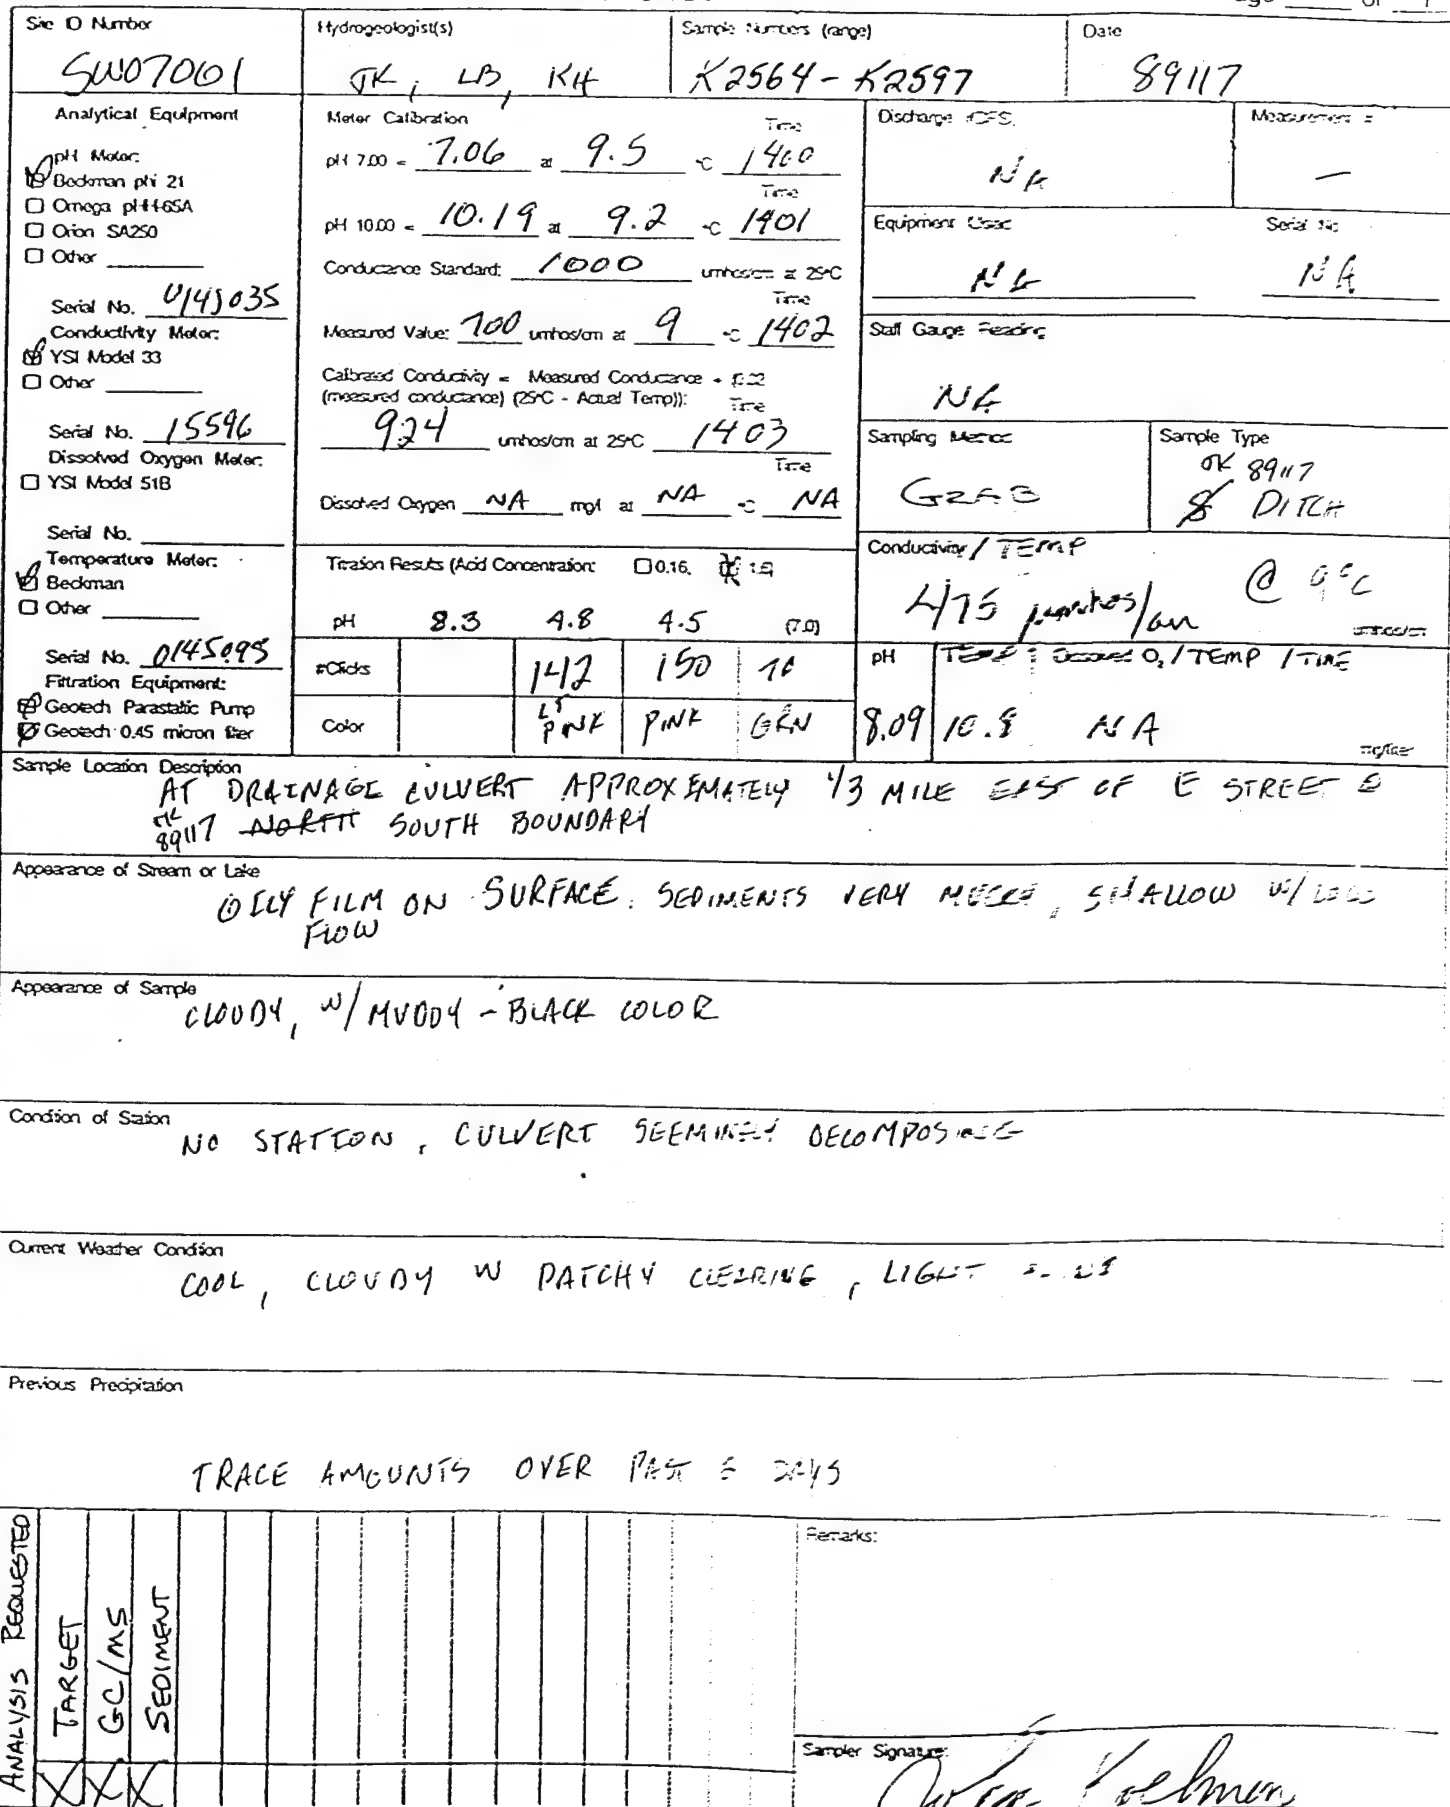 Site ID Number
SW07001
Hydrogeologist(s)
JK, LB, KH
Sample Numbers (range)
K2564 - K2597
Date
89117
Analytical Equipment
pH Meter:
Beckman phi 21
Omega pHH-65A
Orion SA250
Other
Serial No. 0145035
Conductivity Meter:
YSI Model 33
Other
Serial No. 15596
Dissolved Oxygen Meter:
YSI Model 51B
Serial No.
Temperature Meter:
Beckman
Other
Serial No. 0145095
Filtration Equipment:
Geotech Parastatic Pump
Geotech 0.45 micron filter
Meter Calibration
Time
pH 7.00 = 7.06 at 9.5 °C 1400
Time
pH 10.00 = 10.19 at 9.2 °C 1401
Conductance Standard: 1000 umhos/cm at 25°C
Time
Measured Value: 700 umhos/cm at 9 °C 1402
Calibrated Conductivity = Measured Conductance + (0.02
(measured conductance) (25°C - Actual Temp)):
Time
924 umhos/cm at 25°C 1403
Time
Dissolved Oxygen NA mg/l at NA °C NA
Titration Results (Acid Concentration: 0.16, 1.6
pH 8.3 4.8 4.5 (7.0)
#Clicks 142 150 70
Color LT PINK PINK GRN
Discharge (CFS)
NA
Measurement #
—
Equipment Used
NA
Serial No
NA
Staff Gauge Reading
NA
Sampling Method
GRAB
Sample Type
JK 89117
DITCH
Conductivity / TEMP
475 µmhos/cm @ 9°C
umhos/cm
pH TEMP Dissolved O2 / TEMP / TIME
8.09 10.8 NA
mg/liter
Sample Location Description
AT DRAINAGE CULVERT APPROXIMATELY 1/3 MILE EAST OF E STREET
JK 89117 NORTH SOUTH BOUNDARY
Appearance of Stream or Lake
OILY FILM ON SURFACE. SEDIMENTS VERY SHALLOW W/
FLOW
Appearance of Sample
CLOUDY, W/ MUDDY - BLACK COLOR
Condition of Station
NO STATION, CULVERT SEEMINGLY DECOMPOSING
Current Weather Condition
COOL, CLOUDY W PATCHY CLEARING, LIGHT
Previous Precipitation
TRACE AMOUNTS OVER PAST DAYS
ANALYSIS REQUESTED
TARGET
GC/MS
SEDIMENT
X X X
Remarks:
Sampler Signature: